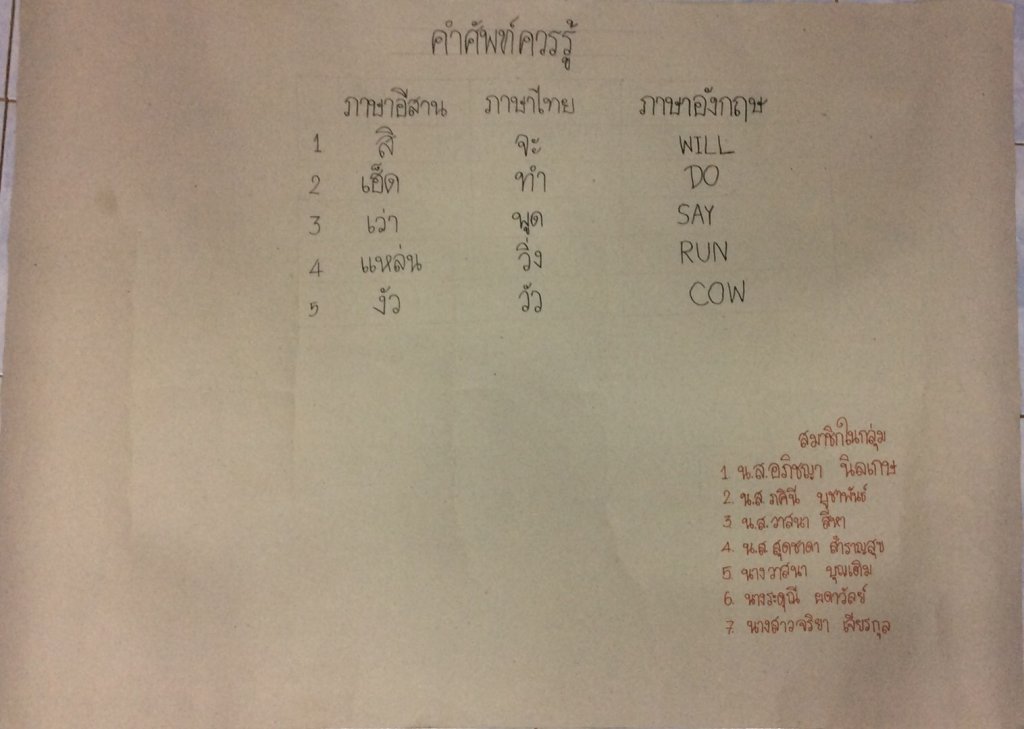 คำศัพท์ควรรู้
ภาษาอีสาน ภาษาไทย ภาษาอังกฤษ
1 สิ จะ WILL
2 เฮ็ด ทำ DO
3 เว่า พูด SAY
4 แหล่น วิ่ง RUN
5 งัว วัว COW
สมาชิกในกลุ่ม
1 น.ส.อภิชญา นิลเกษ
2. น.ส ภคินี บูชาพันธ์
3. น.ส.วาสนา สีหา
4. น.ส สุดชาดา สำราญสุข
5. นางวาสนา บุญเติม
6. นาง
7. นางสาวจริยา เสียรกุล